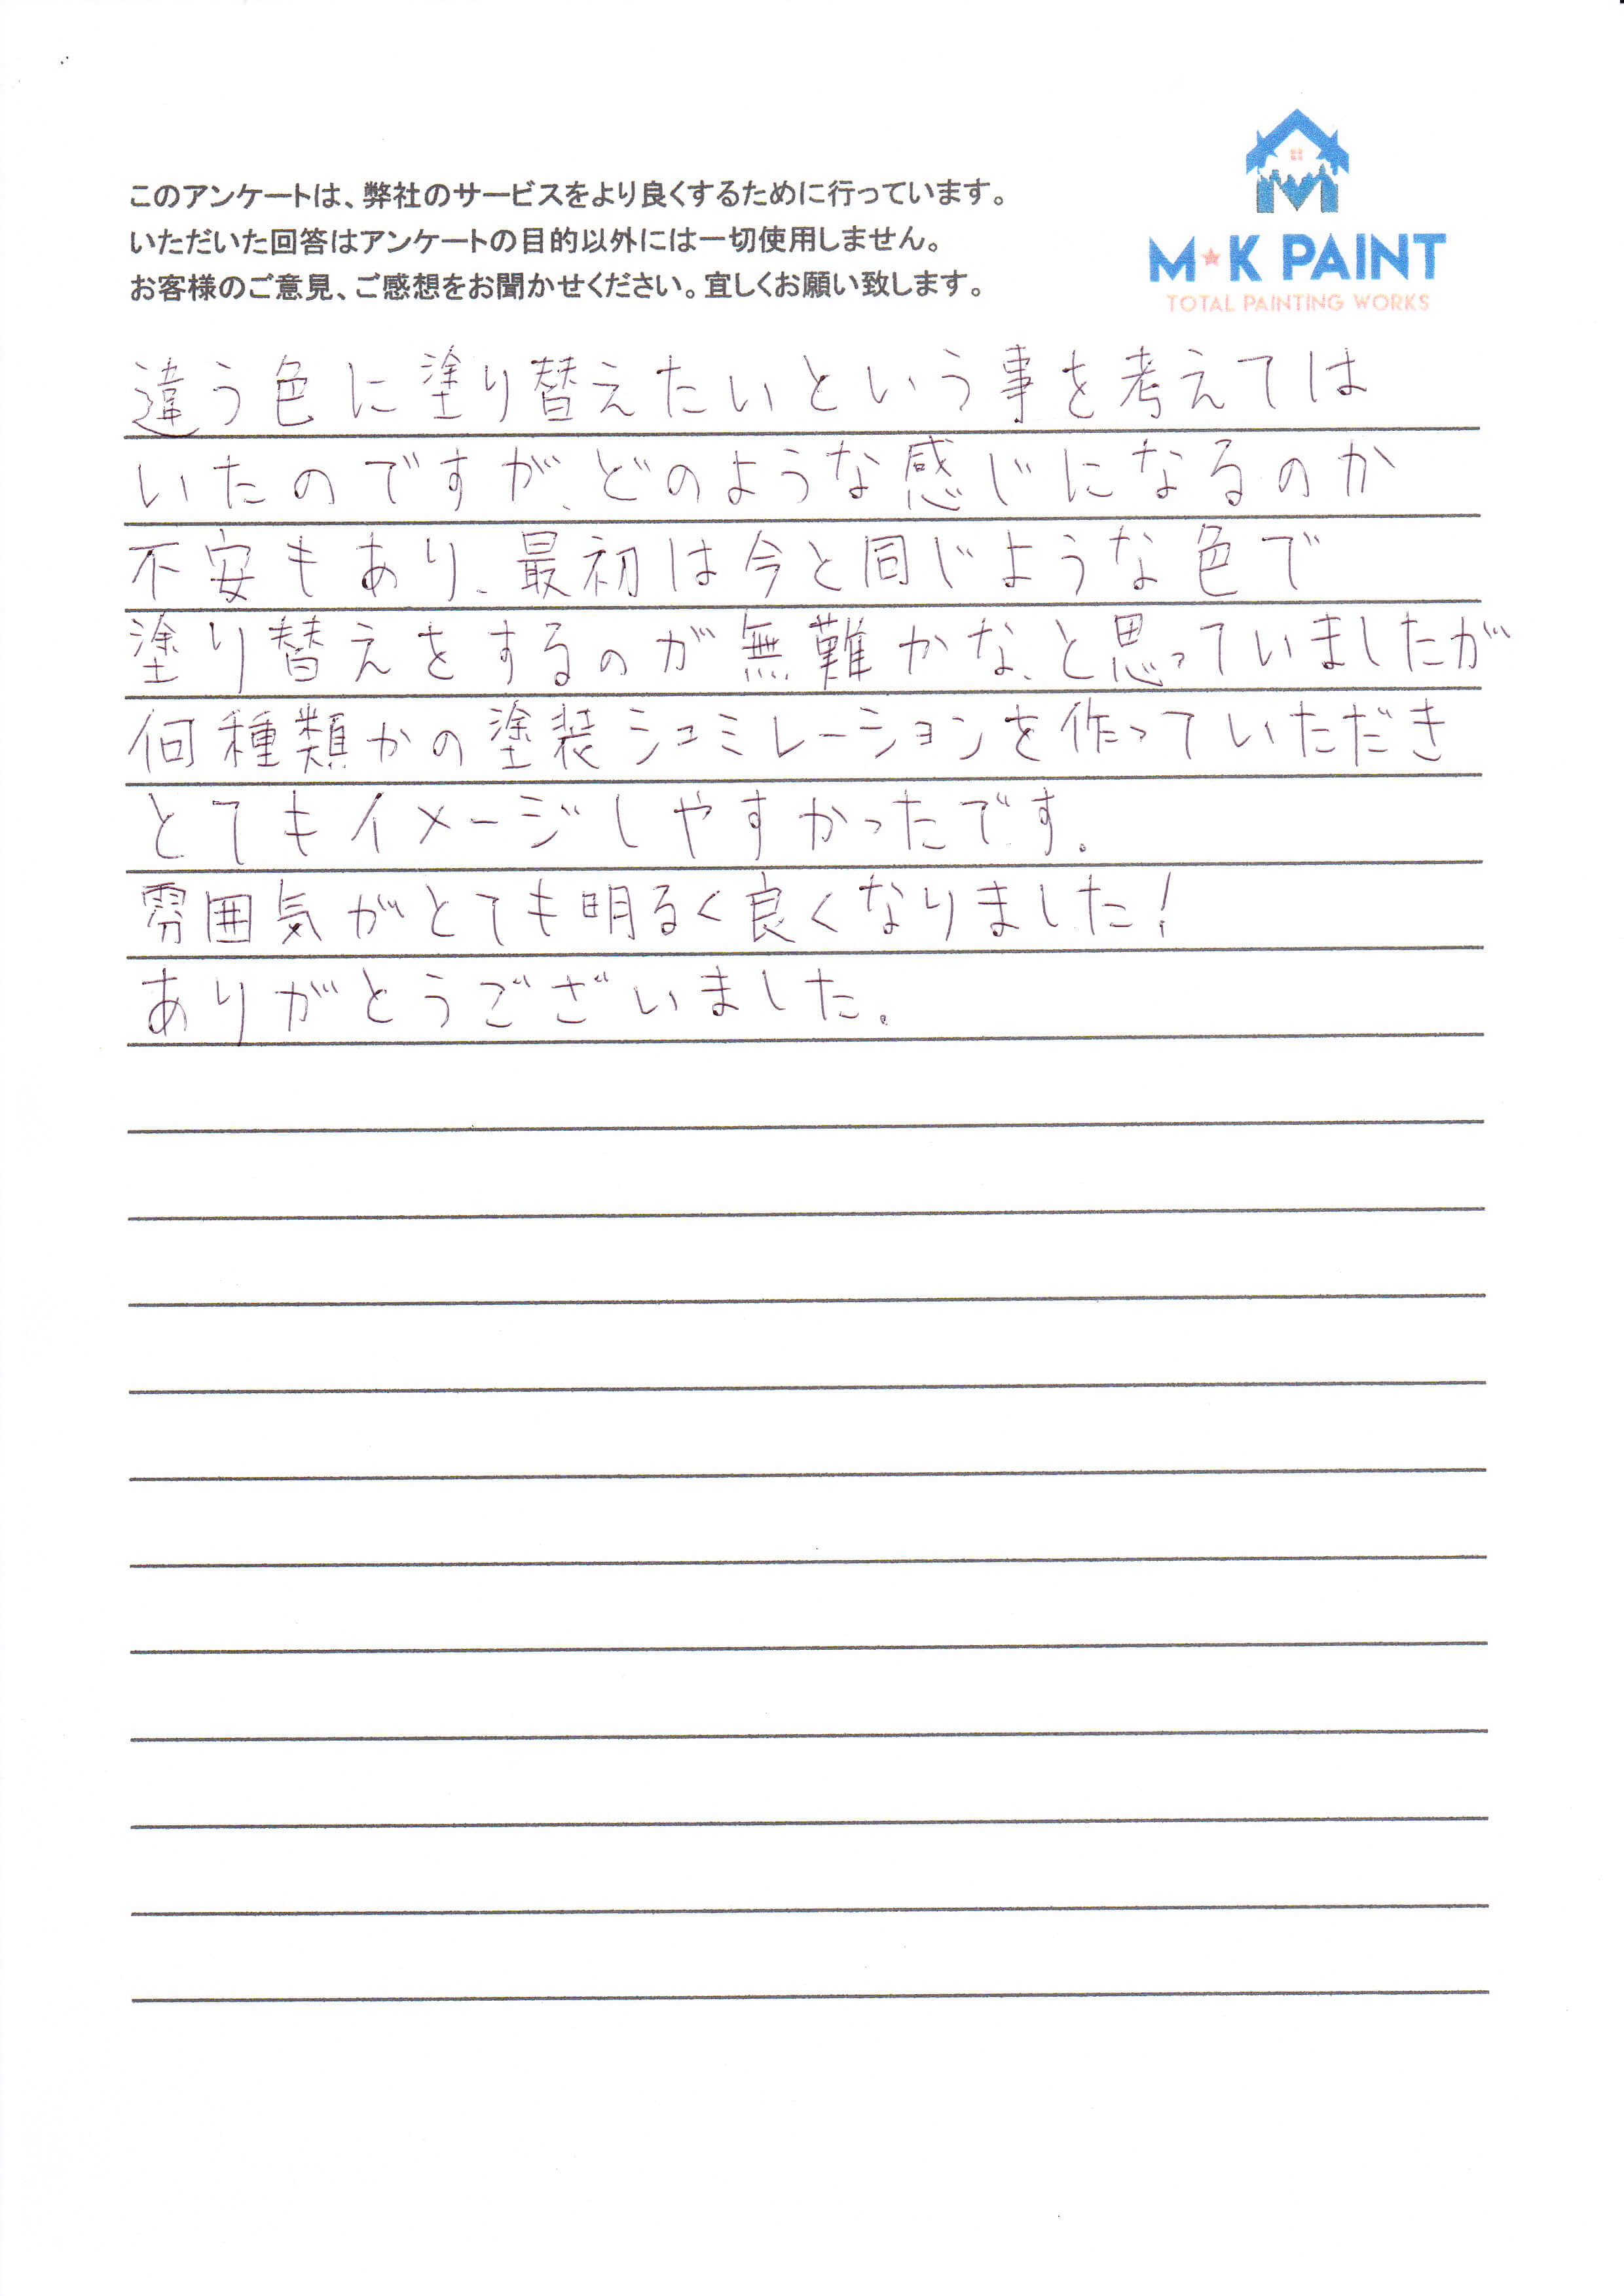 このアンケートは、弊社のサービスをより良くするために行っています。
いただいた回答はアンケートの目的以外には一切使用しません。
お客様のご意見、ご感想をお聞かせください。宜しくお願い致します。
M★K PAINT
TOTAL PAINTING WORKS
違う色に塗り替えたいという事を考えては
いたのですが、どのような感じになるのか
不安もあり、最初は今と同じような色で
塗り替えをするのが無難かな、と思っていましたが
何種類かの塗装シュミレーションを作っていただき
とてもイメージしやすかったです。
雰囲気がとても明るく良くなりました!
ありがとうございました。